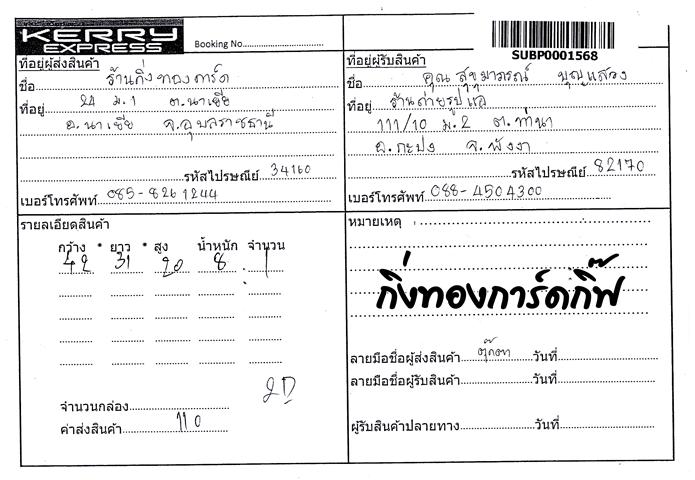 KERRY
EXPRESS
Booking No
SUBP0001568
ที่อยู่ผู้ส่งสินค้า
ชื่อ ร้านกิ่งทองการ์ด
ที่อยู่ 24 ม.1 ต.นาเยีย
อ.นาเยีย จ.อุบลราชธานี
รหัสไปรษณีย์ 34160
เบอร์โทรศัพท์ 085-8261244
ที่อยู่ผู้รับสินค้า
ชื่อ คุณ สุขุมาภรณ์ บุญแสวง
ที่อยู่ ร้านถ่ายรูปแอ
111/10 ม.2 ต.ท่านา
อ.กะปง จ.พังงา
รหัสไปรษณีย์ 82170
เบอร์โทรศัพท์ 088-4504300
รายละเอียดสินค้า
กว้าง * ยาว * สูง น้ำหนัก จำนวน
42 31 20 8 1
2D
จำนวนกล่อง
ค่าส่งสินค้า 110
หมายเหตุ
กิ่งทองการ์ดกิ๊ฟ
ลายมือชื่อผู้ส่งสินค้า ตุ๊กตา วันที่
ลายมือชื่อผู้รับสินค้า วันที่
ผู้รับสินค้าปลายทาง วันที่